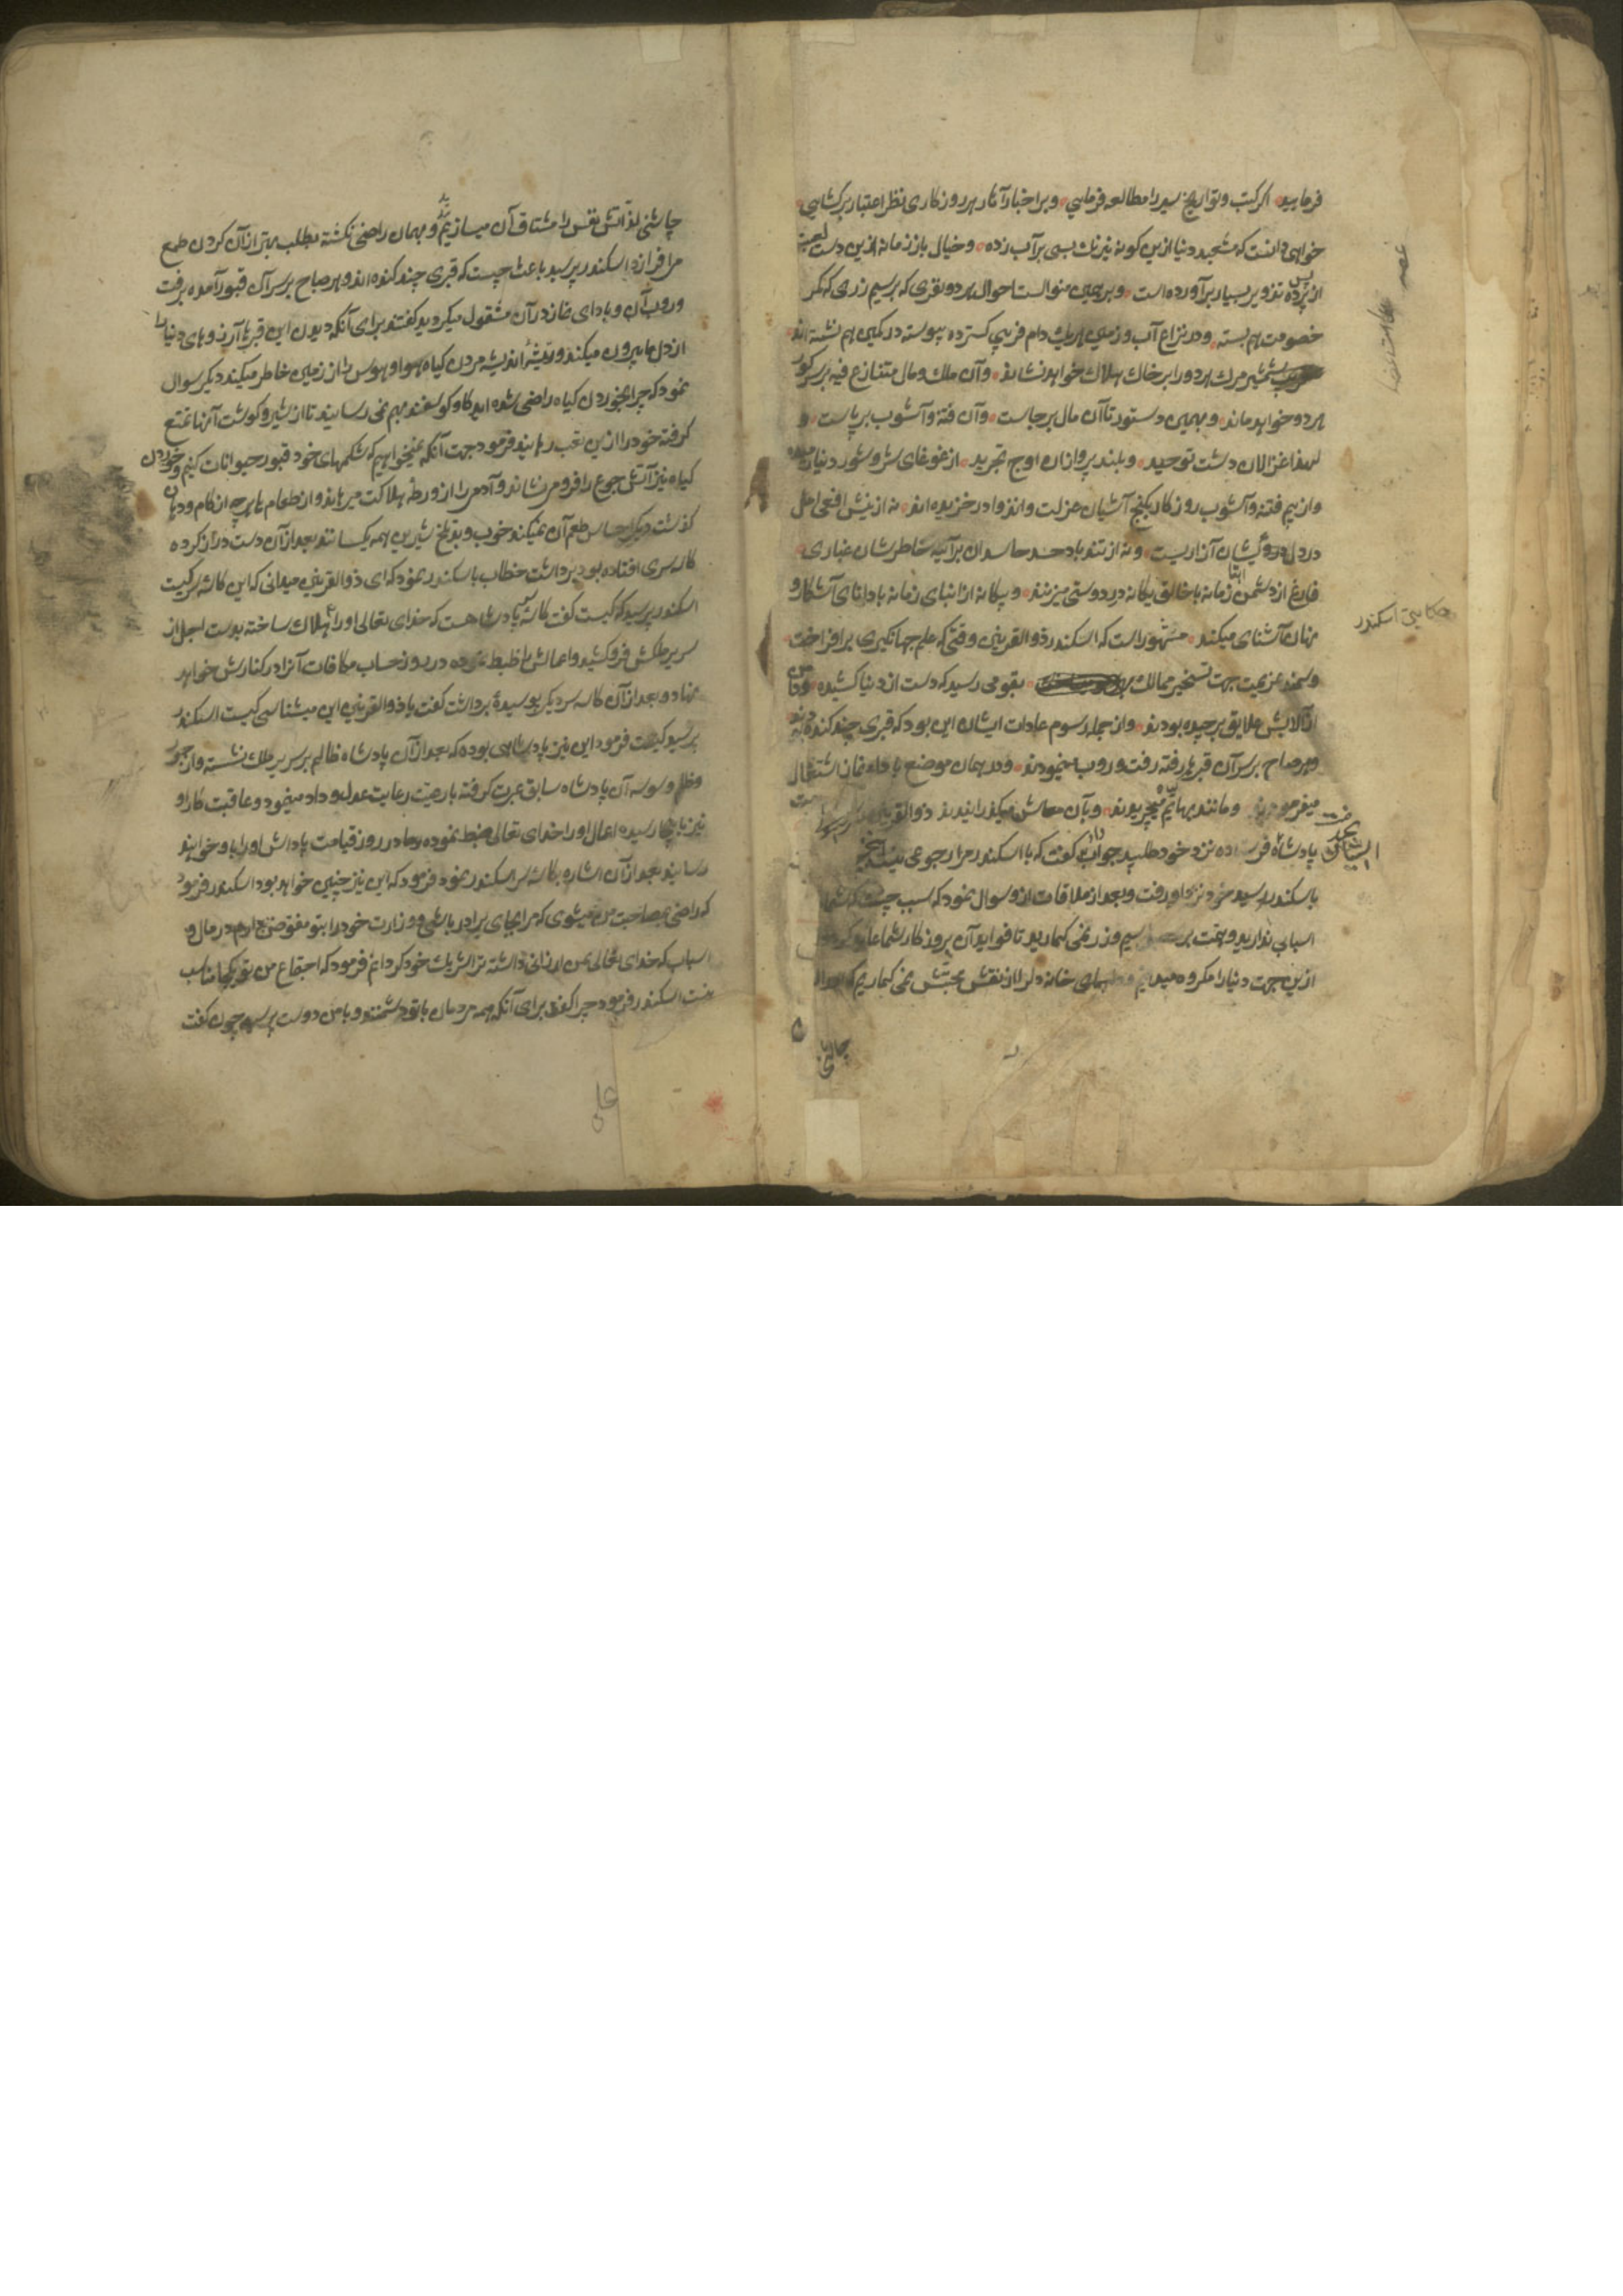 فرمایید اگر کتب و تواریخ سیر را مطالعه فرمایی و بر اخبار آثار هر روزکاری نظر اعتبار برکشایی
خواهی دانست که مشعبد دنیا ازین کونه نیرنک بسی بر آب زده و خیال باز زمانه ازین دست لعبت
از پس پرده تزویر بسیار برآورده است و بر همین منوالست احوال هر دو نفری که بر سیم و زری که کمر
خصومت هم بسته و در نزاع آب و زمین هر یک دام فریبی کسترده پیوسته در کمین هم نشسته اند
شمشیر مرک هر دو را بر خاک هلاک خواهد نشاند و آن ملک و مال متنازع فیه بر سر کور
هر دو خواهد ماند و بهمین دستور تا آن مال برجاست و آن فتنه و آشوب برپاست و
لهذا غزالان دشت توحید و بلند پروازان اوج تجرید از غوغای شر و شور دنیا
و از بیم فتنه و آشوب روزکار بکنج آشیان عزلت و انزوا در خزیده اند نه از نیش افعی امل
در دل درویشان آزاریست و نه از تندباد حسد حاسدان بر آیینه خاطرشان غباری
فارغ از دشمن ابنا زمانه با خالق یکانه در دوستی میزنند و بیکانه از ابنای زمانه با دانای آشکار و
نهان آشنایی میکنند مشهور است که اسکندر ذوالقرنین وقتی که علم جهانکیری برافراخت
و سمند عزیمت جهت تسخیر ممالک بقومی رسید که دست از دنیا کشیده و دامن
از آلایش علایق برچیده بودند و از جمله رسوم عادات ایشان این بود که قبری چند کنده بودند
و هر صباح بر سر آن قبرها رفته رفت و روب مینمودند و در همان موضع باداء نماز اشتغال
میفرمودند و مانند بهایم میچریدند و بآن معاش میکذرانیدند ذوالقرنین
پادشاه فرستاده نزد خود طلبید جواب داد کفت که با اسکندر مرا رجوعی نیست
باسکندر رسید خود نزد او رفت و بعد از ملاقات ازو سوال نمود که سبب چیست که شما
اسبابی ندارید و همت بر سیم و زر نمی کمارید تا فواید آن بروزکار شما عاید کردد
ازین جهت دنیا را مکروه میداریم و خانه دل را از نقش محبتش نمی کماریم که
چاشنی
حکایت اسکندر
چاشنی لذاتش نفس را مشتاق آن میسازیم و بهمان راضی نکشته بطلب بهتر از آن کردن طمع
می افرازد اسکندر پرسید باعث چیست که قبری چند کنده اند و هر صباح بر سر آن قبور آمده برفت
و روب آن و بادای نماز در آن مشغول میکردید کفتند برای آنکه دیدن این قبرها آرزوهای دنیا را
از دل ما بیرون میکند و تیشه اندیشه مردن کیاه هوا و هوس را از زمین خاطر میکند دیکر سوال
نمود که چرا بخوردن کیاه راضی شده اید کاو و کوسفند بهم نمی رسانید تا از شیر و کوشت آنها تمتع
کرفته خود را ازین تعب رهانید فرمود جهت آنکه نمیخواهیم که شکمهای خود قبور حیوانات کنیم و خوردن
کیاه نیز آتش جوع را فرو می نشاند و آدمی را از ورطه هلاکت میرهاند و از طعام ها هر چه از کام و دهان
کذشت دیکر احساس طعم آن نمیکند خوب و بد و تلخ شیرین همه یکسانند بعد از آن دست دراز کرده
کاسه سری افتاده بود برداشت خطاب باسکندر نمود که ای ذوالقرنین میدانی که این کاسه سر کیست
اسکندر پرسید که کیست کفت کاسه سر پادشاهست که خدای تعالی او را هلاک ساخته بدست اجل از
سریر ملکش فرو کشید و اعمالش را ضبط کرده در روز حساب مکافات آنرا در کنارش خواهد
نهاد و بعد از آن کاسه سر دیکر پوسیدهٔ برداشت کفت یا ذوالقرنین این میشناسی کیست اسکندر
پرسید کیست فرمود این نیز پادشاهی بوده که بعد از آن پادشاه ظالم بر سریر ملک نشسته و از جور
و ظلم و سوسه آن پادشاه سابق عبرت کرفته با رعیت رعایت عدل و داد مینمود و عاقبت کار او
نیز باینجا رسیده اعمال او را خدای تعالی ضبط نموده و در روز قیامت پاداش او را باو خواهد
رسانید بعد از آن اشاره بکاسه سر اسکندر نمود فرمود که این نیز چنین خواهد بود اسکندر فرمود
که راضی بمصاحبت من میشوی که مرا بجای برادر باشی و وزارت خود را بتو مفوض دارم در مال و
اسباب که خدای تعالی بمن ارزانی داشته ترا شریک خود کردانم فرمود که اجتماع من و تو یکجا مناسب
نیست اسکندر فرمود چرا کفت برای آنکه همه مردمان با تو دشمنند و با من دوست پرسید چون کفت
علی